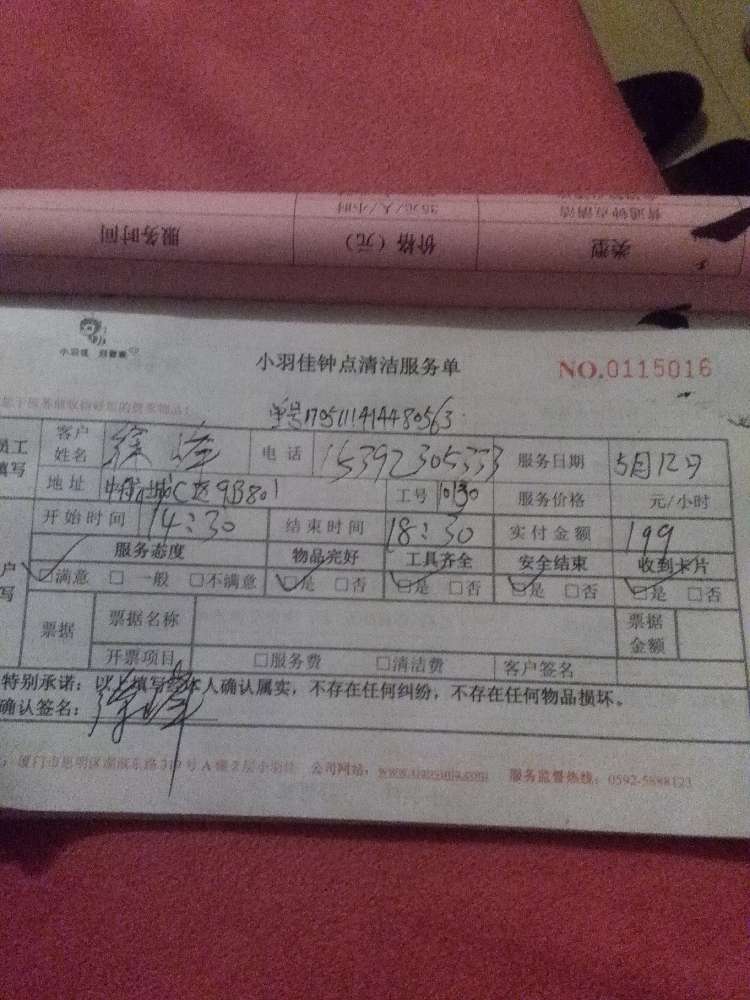 普通钟点清洁 35元/人/小时
类型 价格（元） 服务时间
小羽佳
小羽佳钟点清洁服务单 NO.0115016
单号1705111414480563
员工填写 客户姓名 徐 电话 15392305333 服务日期 5月12日
地址 C区9B801 工号 10130 服务价格 元/小时
开始时间 14:30 结束时间 18:30 实付金额 199
服务态度 物品完好 工具齐全 安全结束 收到卡片
户写 □满意 □一般 □不满意 □是 □否 □是 □否 □是 □否 □是 □否
票据 票据名称 票据金额
开票项目 □服务费 □清洁费 客户签名
特别承诺：以上填写经本人确认属实，不存在任何纠纷，不存在任何物品损坏。
确认签名：徐
厦门市思明区 东路319号A 2层小羽佳 公司网站： 服务监督热线：0592-5888123